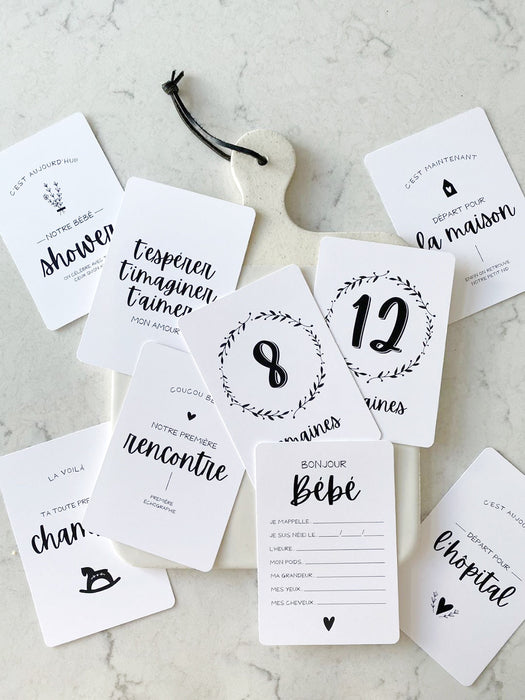 C'EST AUJOURD'HUI
NOTRE BÉBÉ
shower
ON CÉLÈBRE AVEC
t'espérer
t'imaginer
t'aimer
MON AMOUR
C'EST MAINTENANT
DÉPART POUR
la maison
ENFIN ON RETROUVE
NOTRE PETIT NID
8
semaines
12
COUCOU
NOTRE PREMIÈRE
rencontre
PREMIÈRE
ÉCHOGRAPHIE
LA VOILÀ
TA TOUTE
BONJOUR
Bébé
JE M'APPELLE
JE SUIS NÉ(E) LE / /
L'HEURE
MON POIDS
MA GRANDEUR
MES YEUX
MES CHEVEUX
C'EST
DÉPART POUR
l'hôpital